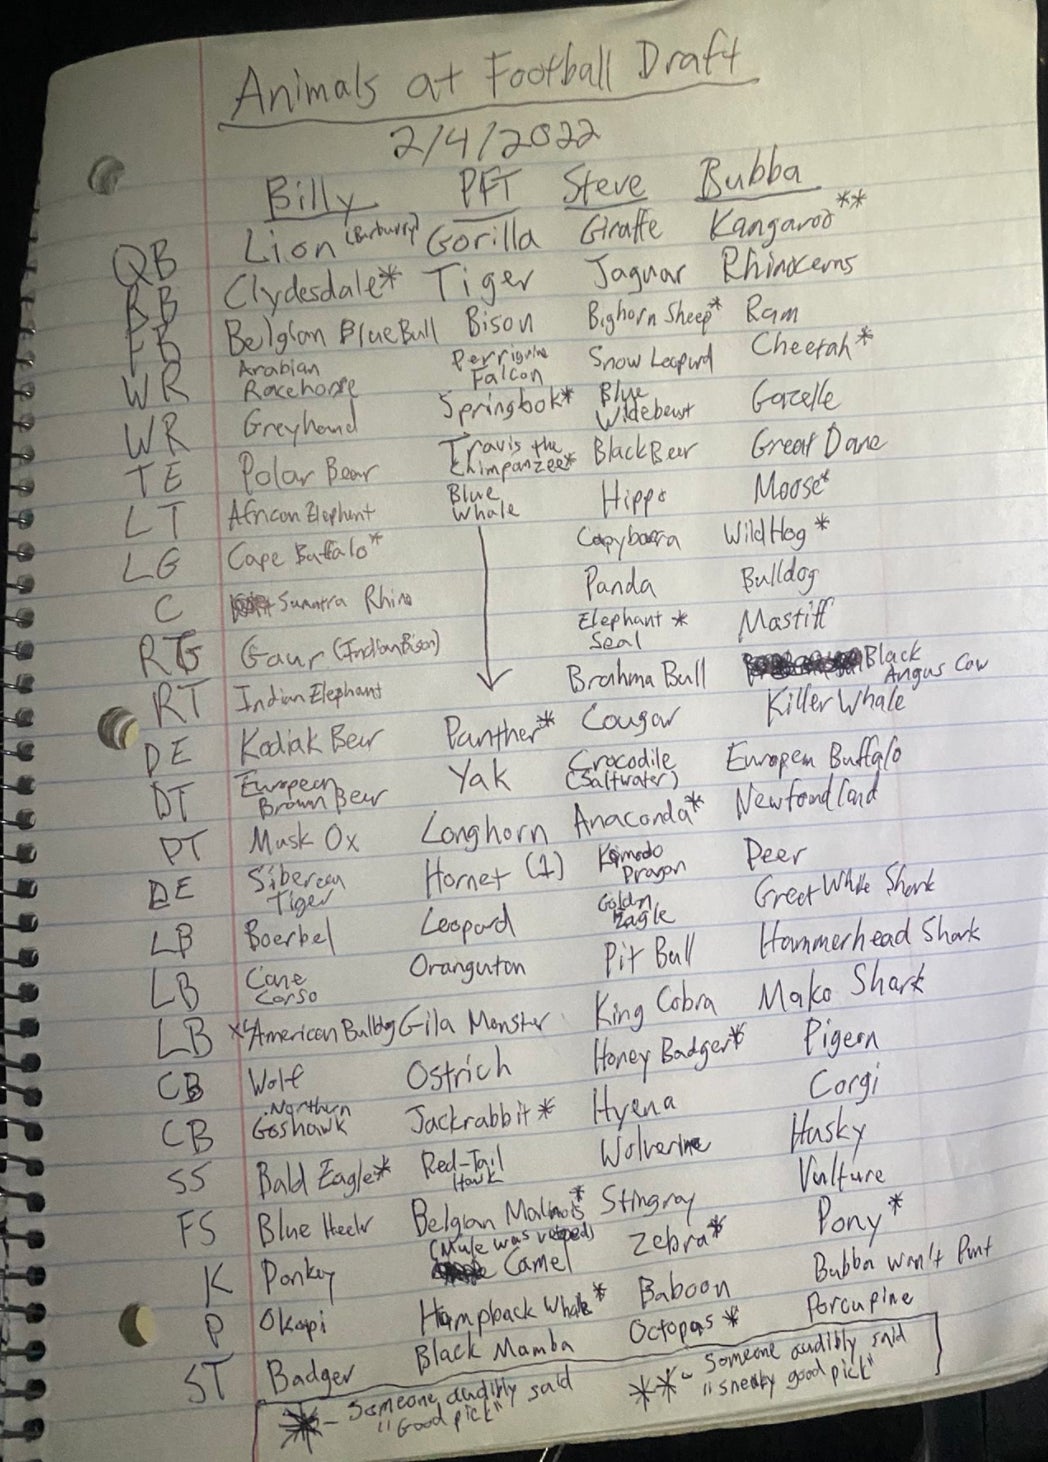 Animals at Football Draft
2/4/2022
Billy PFT Steve Bubba
QB Lion (Barbary) Gorilla Giraffe Kangaroo**
RB Clydesdale* Tiger Jaguar Rhinocerns
FB Belgian Blue Bull Bison Bighorn Sheep* Ram
WR Arabian Racehorse Perrigrine Falcon Snow Leopard Cheetah*
WR Greyhound Springbok* Blue Wildebeest Gazelle
TE Polar Bear Travis the Chimpanzee* Black Bear Great Dane
LT African Elephant Blue Whale Hippo Moose*
LG Cape Buffalo* Capybara Wild Hog*
C Sumatra Rhino Panda Bulldog
RG Gaur (Indian Bison) Elephant Seal* Mastiff
RT Indian Elephant Brahma Bull Black Angus Cow
DE Kodiak Bear Panther* Cougar Killer Whale
DT European Brown Bear Yak Crocodile (Saltwater) Europen Buffalo
DT Musk Ox Longhorn Anaconda* Newfoundland
DE Siberean Tiger Hornet (1) Komodo Dragon Deer
LB Boerbel Leopard Goldn Eagle Great White Shark
LB Cane Corso Orangutan Pit Bull Hammerhead Shark
LB XL American Bulldog Gila Monster King Cobra Mako Shark
CB Wolf Ostrich Honey Badger* Pigeon
CB Northern Goshawk Jackrabbit* Hyena Corgi
SS Bald Eagle* Red-Tail Hawk Wolverine Husky
FS Blue Heeler Belgian Malinois* Stingray Vulture
K Donkey (Mule was vetoed) Camel Zebra* Pony*
P Okapi Humpback Whale* Baboon Bubba won't Punt
ST Badger Black Mamba Octopus* Porcupine
* - Someone audibly said "Good pick"
** - Someone audibly said "sneaky good pick"